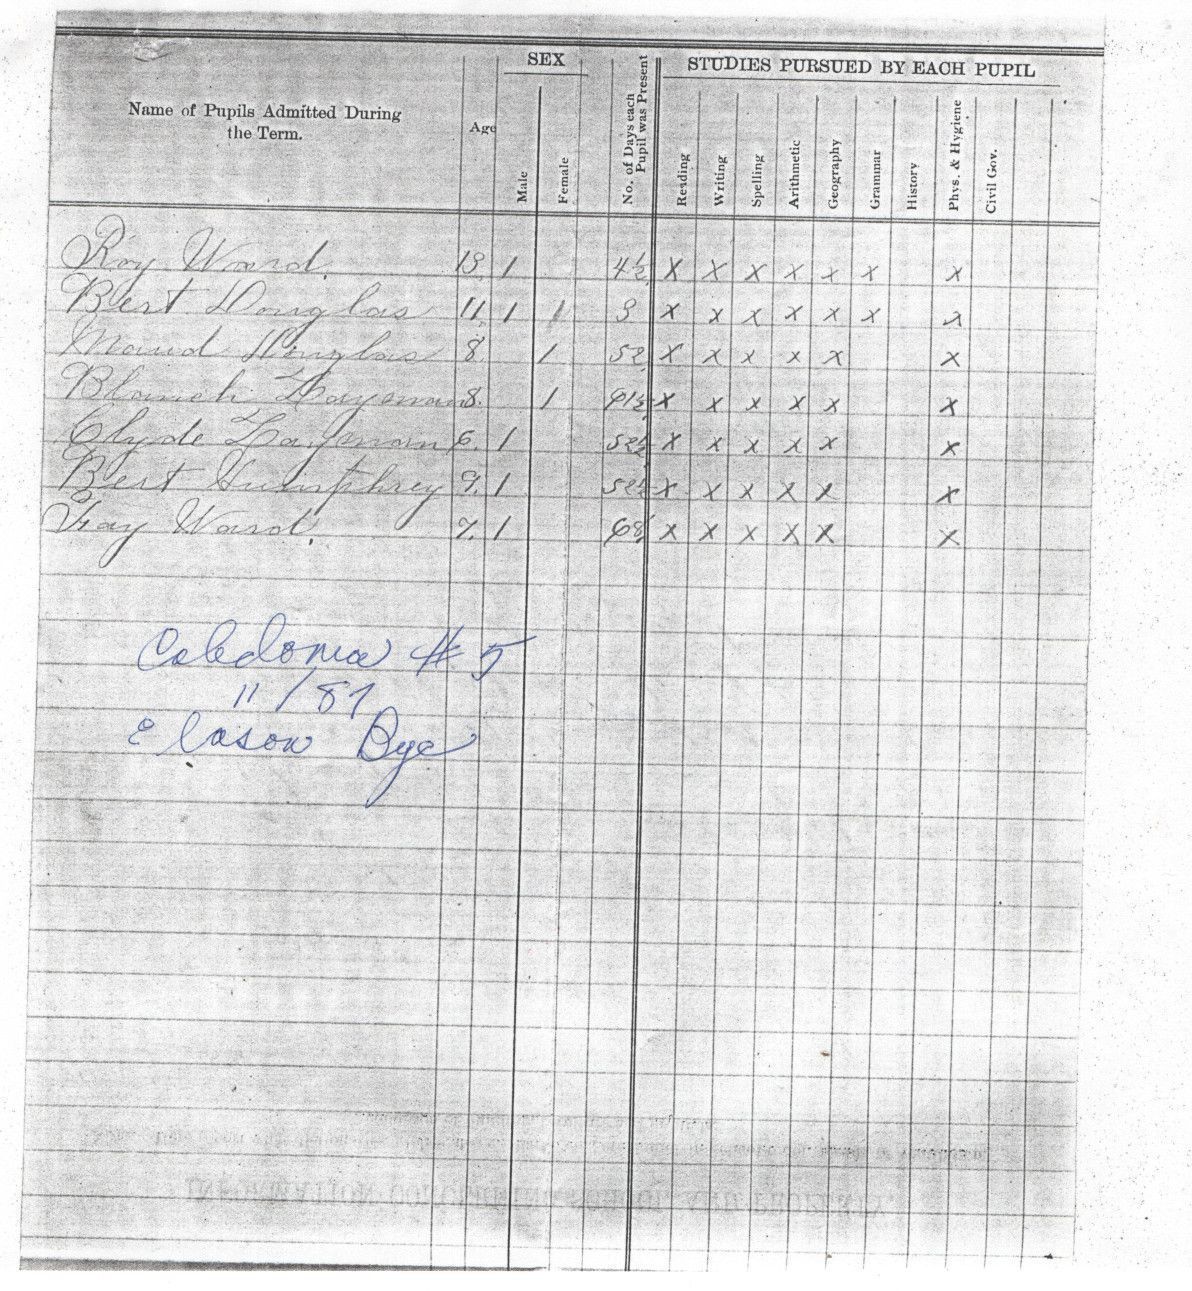 SEX
STUDIES PURSUED BY EACH PUPIL
Name of Pupils Admitted During
the Term.
Age
Male
Female
No. of Days each
Pupil was Present
Reading
Writing
Spelling
Arithmetic
Geography
Grammar
History
Phys. & Hygiene
Civil Gov.
Roy Ward. 13 1 4½ x x x x x x x
Bert Douglas 11. 1 1 3 x x x x x x x
Maud Douglas 8. 1 52 x x x x x x
Blanch Layman 8. 1 61½ x x x x x x
Clyde Layman 6. 1 52½ x x x x x x
Bert Humphrey 9. 1 52½ x x x x x x
Fay Ward. 7. 1 68. x x x x x x
Caledonia # 5
11/87
Elason Bye